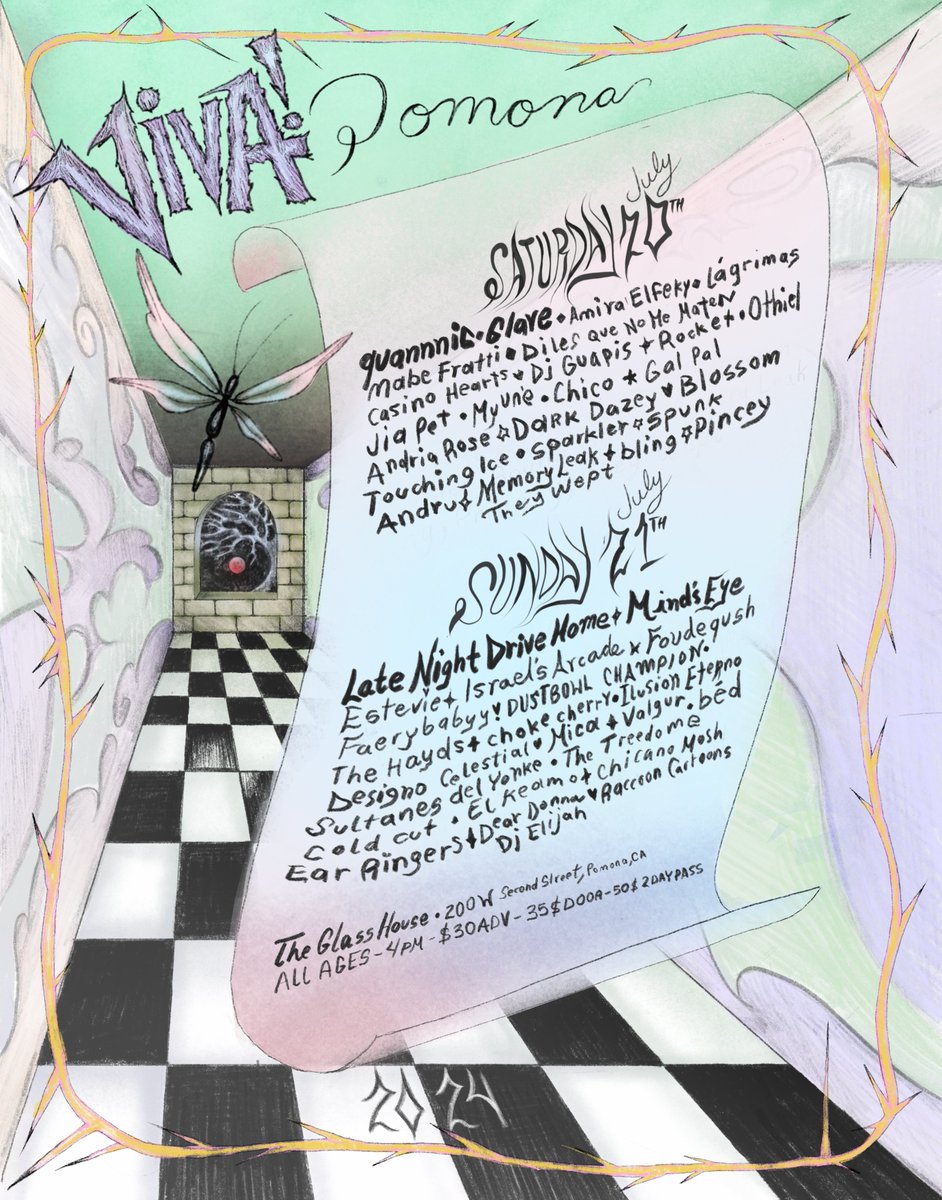 VIVA! Pomona
July
SATURDAY 20TH
quannnic • Glare • Amira Elfeky • Lágrimas
Mabe Fratti • Diles Que No Me Maten
Casino Hearts ♥ Dj Guapis ✦ Rocket • Othiel
Jia Pet • Myuné • Chico ★ Gal Pal
Andria Rose ☆ Dark Dazey ♥ Blossom
Touching Ice • Sparkler ☆ Spunk
Andru ✧ Memory Leak ✦ bling ☆ Pincey
They Wept
July
SUNDAY 21TH
Late Night Drive Home ✦ Mind's Eye
Estevie ✦ Israel's Arcade x Foudeqush
Faerybabyy ♥ DUSTBOWL CHAMPION •
The Hayds ✦ choke cherry • Ilusion Eterno
Designo Celestial ♥ Mica ✦ Valgur • béd
Sultanes del Yonke • The Treedome
Cold cut • El Keamo ✦ Chicano Mosh
Ear Ringers ✦ Dear Donna ♥ Raccoon Cartoons
Dj Elijah
The Glass House • 200 W Second Street, Pomona, CA
ALL AGES - 4PM - $30 ADV - 35$ DOOR - 50$ 2 DAY PASS
2024